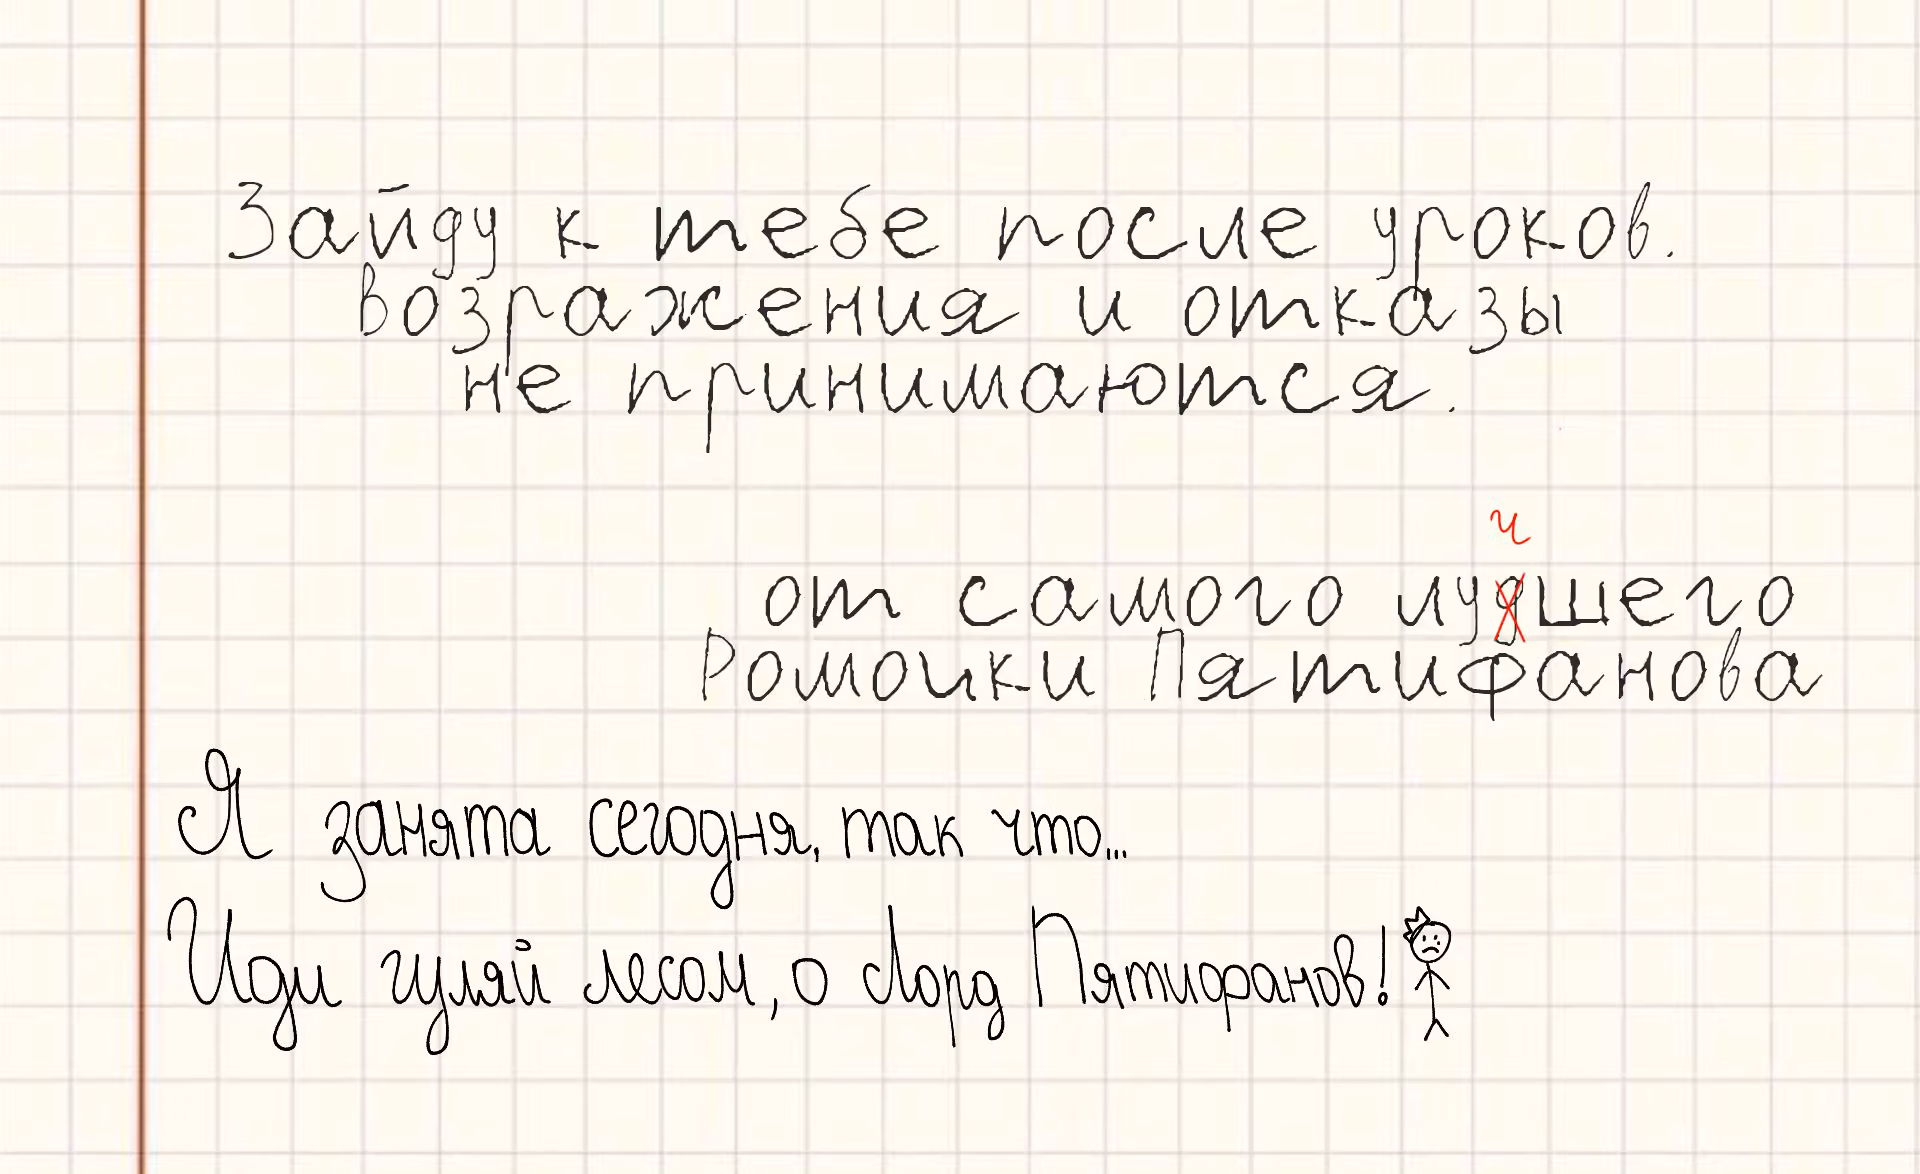 Зайду к тебе после уроков.
возражения и отказы
не принимаются.
ч
от самого лудшего
Ромочки Пятифанова
Я занята сегодня, так что...
Иди гуляй лесом, о Лорд Пятифанов!